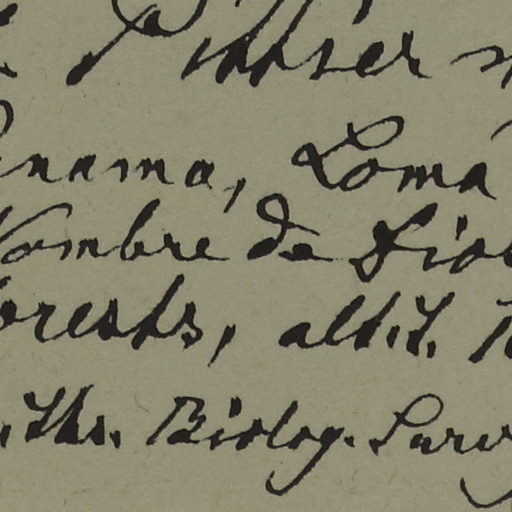 Pittier
anama, Loma
Nombre de Dios
orests, alt.
Ths. Biolog. Surv